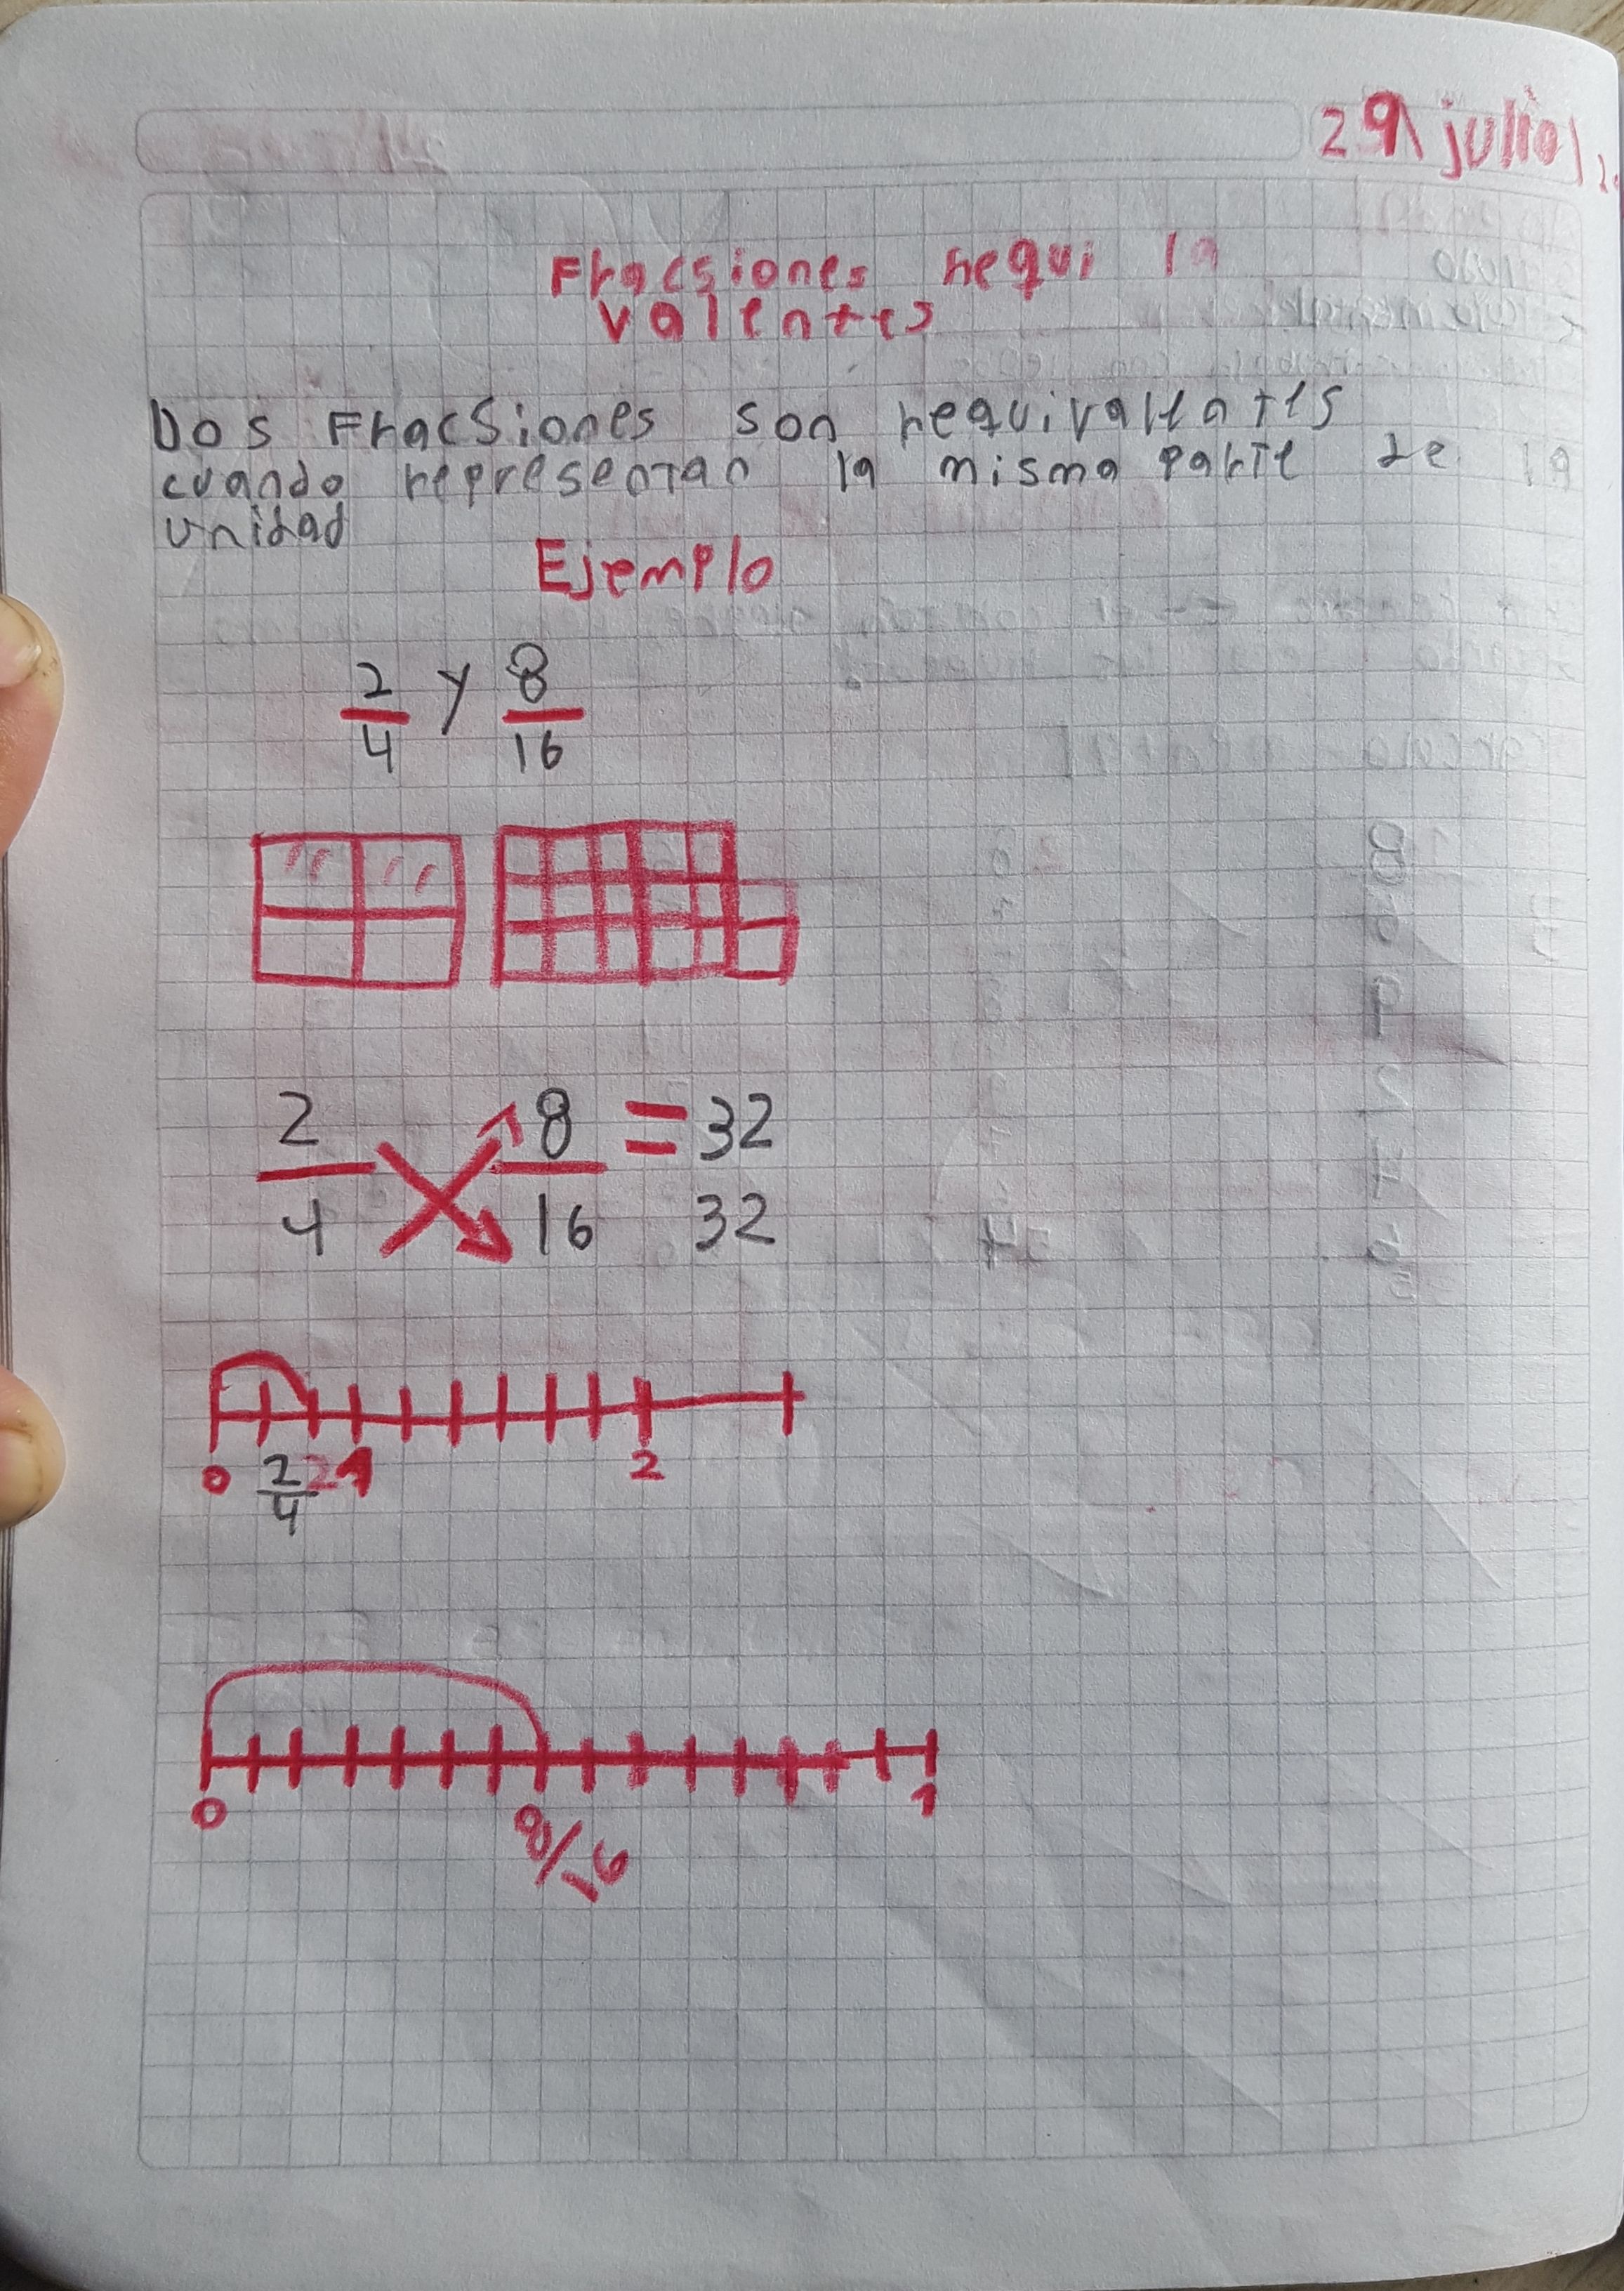 29 julio
Fracsiones requi
valentes
Dos Fracsiones son requivalentes
cuando representan la misma parte de la
unidad
Ejemplo
2/4 y 8/16
2/4 8/16 = 32
32
0 2/4 1 2
0 8/16 1